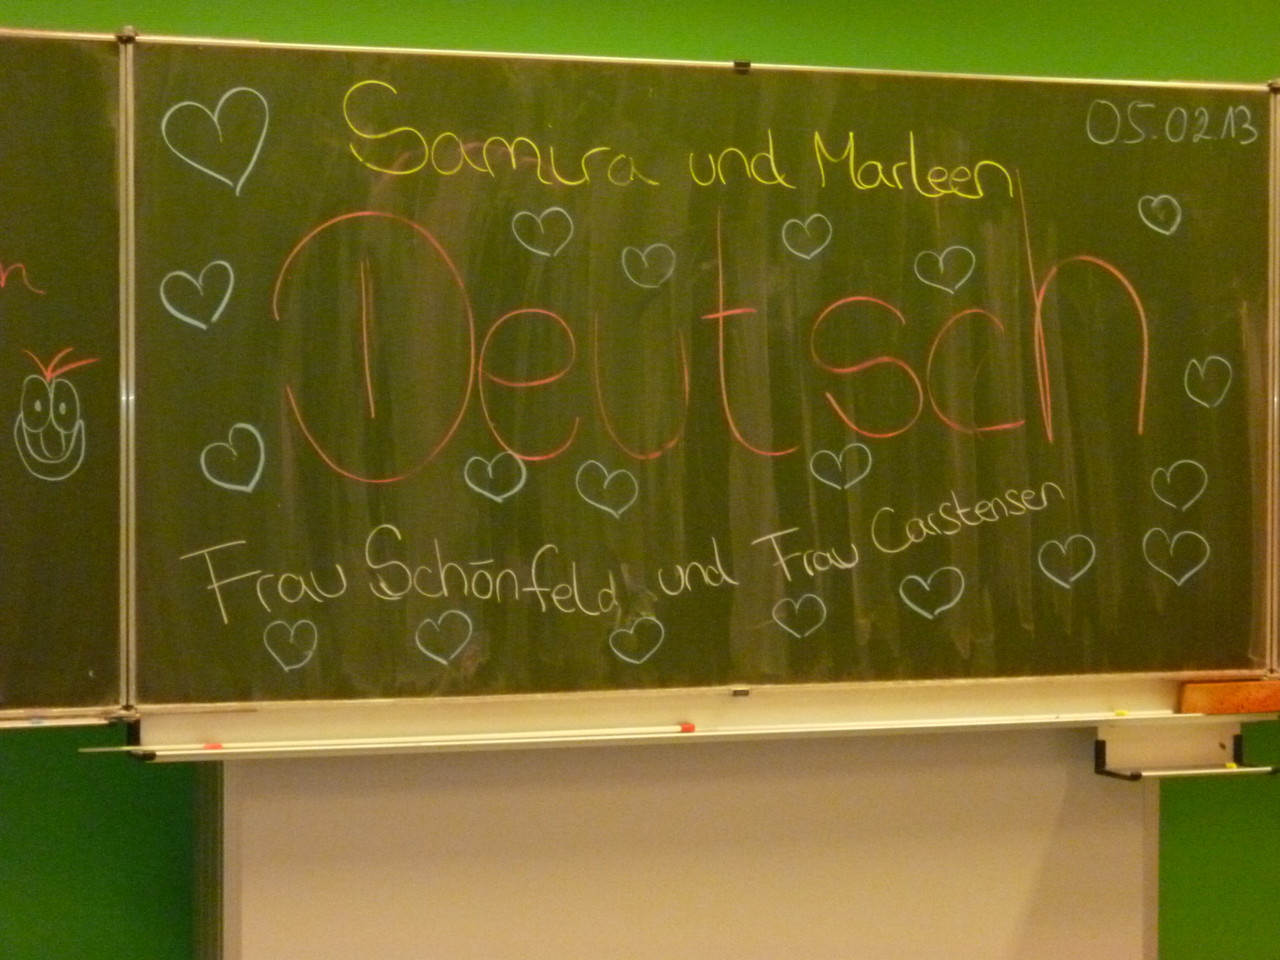 05.02.13
Samira und Marleen
Deutsch
Frau Schönfeld und Frau Carstensen